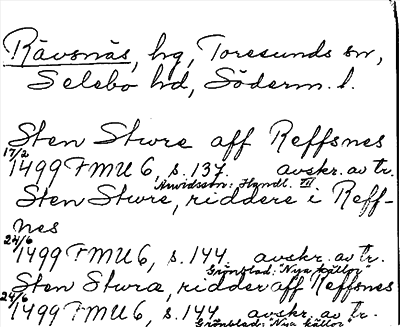 Rävsnäs, hg, Toresunds sn,
Selebo hd, Söderm. l.
Sten Sture aff Reffsnes
17/2
1499 FMU 6, s. 137. avskr. av tr.
Arwidsson: Handl. VI
Sten Sture, riddere i Reff-
nes
24/6
1499 FMU 6, s. 144. avskr. av tr.
Grönblad: "Nya källor"
Sten Stura, ridder aff Reffsnes
24/6
1499 FMU 6, s. 144. avskr. av tr.
Grönblad: "Nya källor"